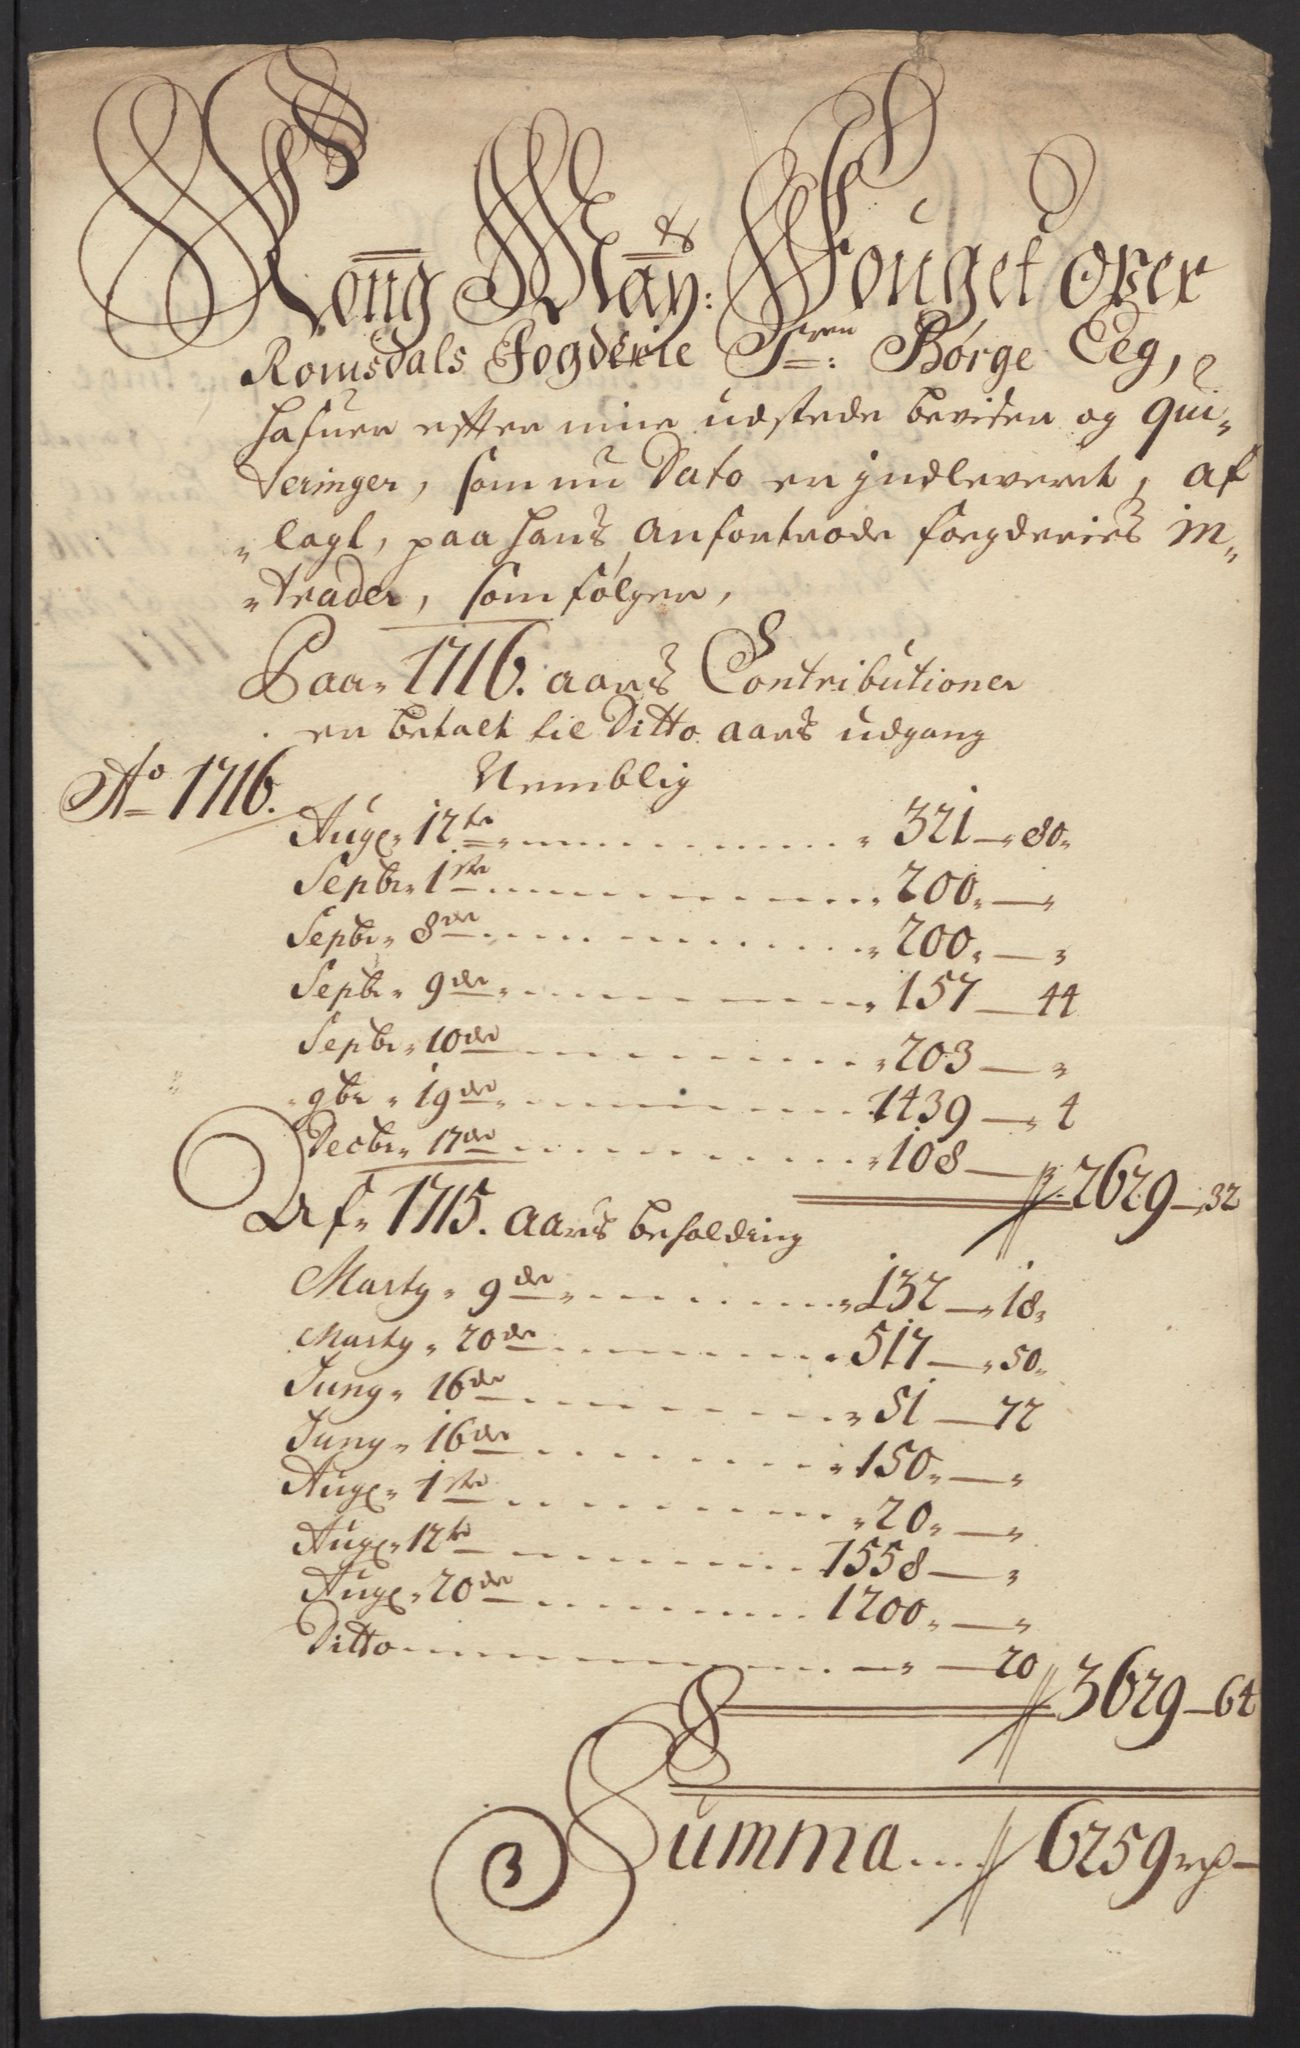 Kong May:ts Fouget over
Romsdals Fogderie Sren: Børge Eeg,
hafuer efter mine udstede beviser og qui„
teringer, som nu Dato er indleveret, af
„lagt, paa hans anfortrode foegderies in„
„trader, som følger,
Paa„ 1716. aars Contributioner
er betalt til Ditto aars udgang
Nemblig
Ao 1716.
Aug„ 12te „ 321 — 80„
Septbr„ 1ste „ 200„ — „
Septbr„ 8de „ 200„ — „
Septbr„ 9de „ 157 — 44
Septbr„ 10de „ 203 — „
9br„ 19de 1439 — 4
Decbr„ 17de „ 108 — „ 2629 — 32
Af„ 1715. aars beholding
Marty„ 9de „ 132 — „ 18„
Marty„ 20de „ 517 — „ 50„
Juny„ 16de „ 51 — 72
Juny„ 16de „ 150„ — „
Aug„ 1ste „ 20„ — „
Aug„ 12te 1558 — „
Aug„ 20de 1200„ — „
Ditto — „ — 20 3629 — 64
Summa .... 6259 rd —
3